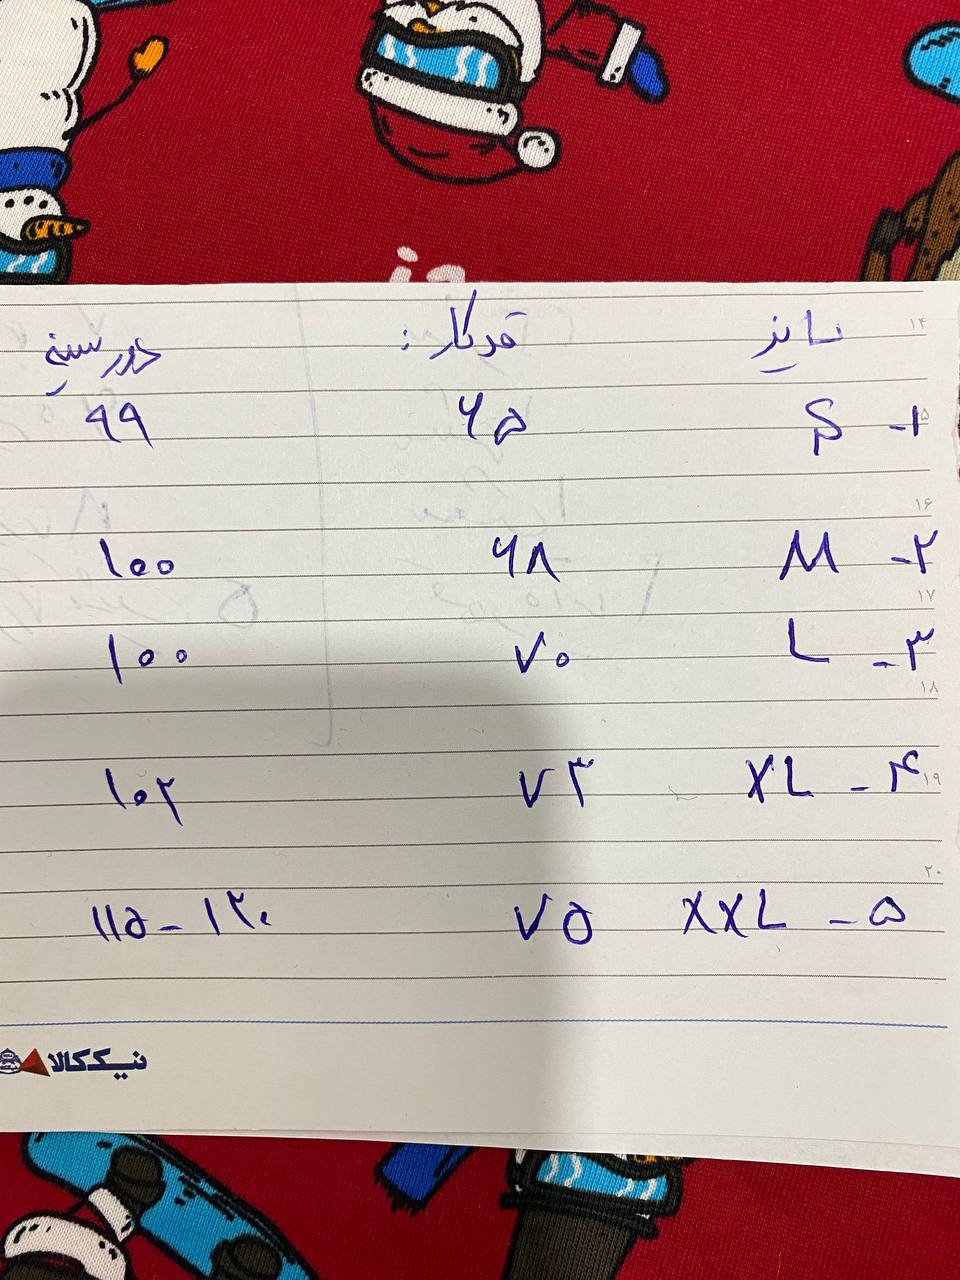 سایز قد کار : دور سینه
۱- S ۶۵ ۹۹
۲- M ۶۸ ۱۰۰
۳- L ۷۰ ۱۰۰
۴- XL ۷۳ ۱۰۲
۵- XXL ۷۵ ۱۱۵-۱۲۰
۱۴
۱۵
۱۶
۱۷
۱۸
۱۹
۲۰
نیک کالا